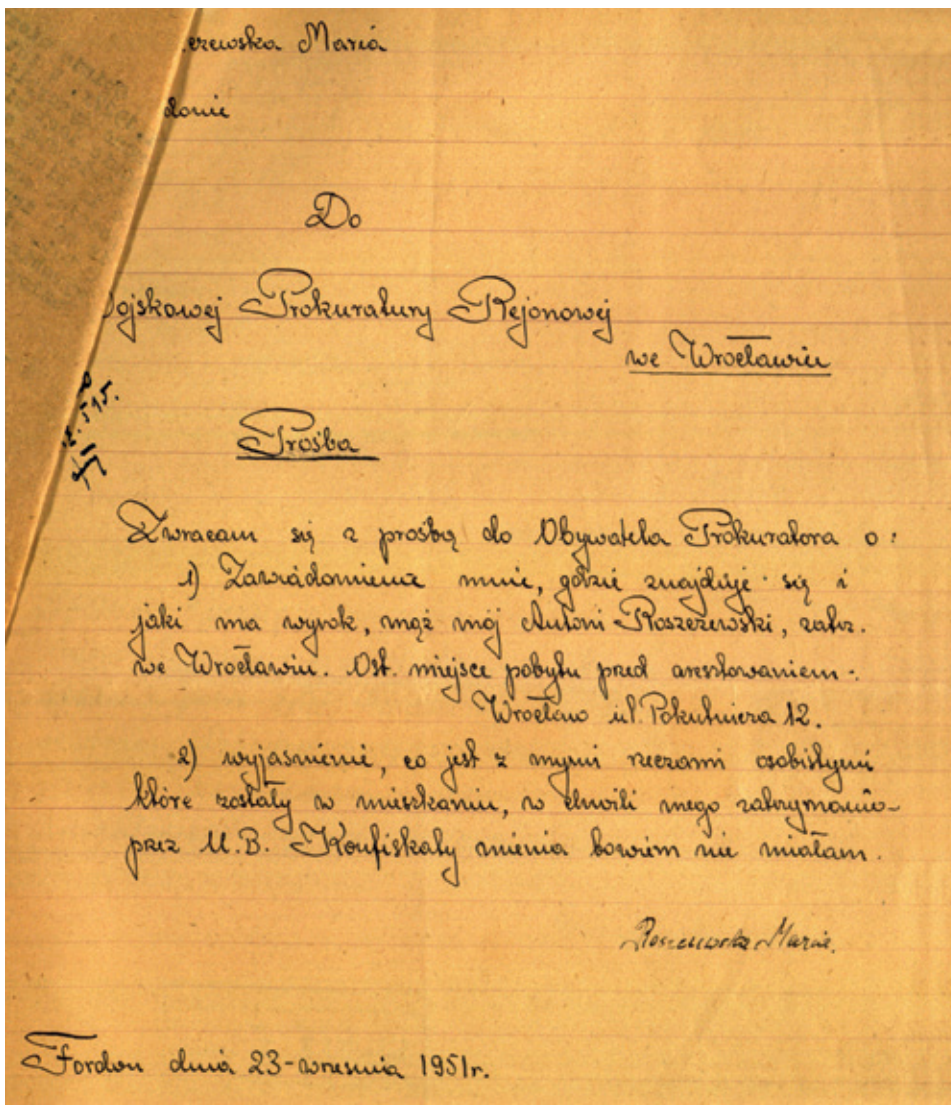 erewska Maria
donie
Do
ojskowej Prokuratury Rejonowej
we Wrocławiu
Prośba
Zwracam się z prośbą do Obywatela Prokuratora o:
1) Zawiadomienie mnie, gdzie znajduje się i
jaki ma wyrok, mąż mój Antoni Roszczewski, zatrz.
we Wrocławiu. Ost. miejsce pobytu przed aresztowaniem -
Wrocław ul. Pokutnicza 12.
2) wyjaśnienie, co jest z mymi rzeczami osobistymi
które zostały w mieszkaniu, w chwili mego zatrzymania
przez U.B. Konfiskaty mienia bowiem nie miałam.
Roszczewska Maria.
Fordon dnia 23-września 1951r.